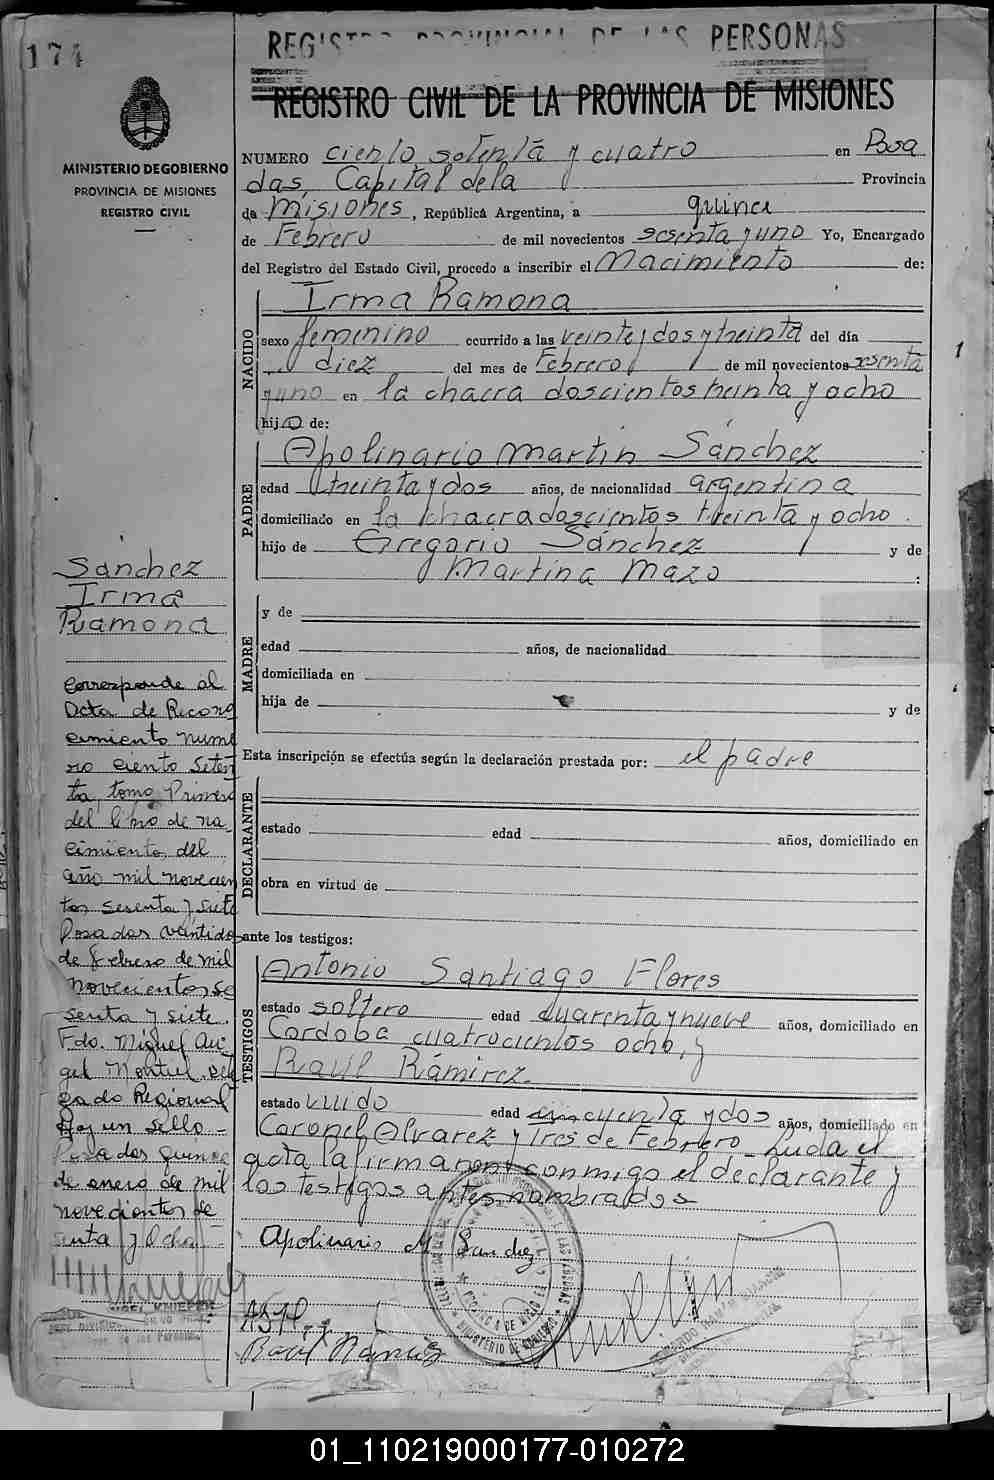 174
REGISTRO PROVINCIAL DE LAS PERSONAS
REGISTRO CIVIL DE LA PROVINCIA DE MISIONES
MINISTERIO DE GOBIERNO
PROVINCIA DE MISIONES
REGISTRO CIVIL
NUMERO ciento setenta y cuatro en Posa
das, Capital de la Provincia
da Misiones, República Argentina, a quince
de Febrero de mil novecientos sesenta y uno Yo, Encargado
del Registro del Estado Civil, procedo a inscribir el Nacimiento de:
NACIDO
Irma Ramona
sexo femenino ocurrido a las veinte y dos y treinta del día
diez del mes de Febrero de mil novecientos sesenta
y uno en la chacra doscientos treinta y ocho
hija de:
PADRE
Apolinario Martin Sánchez
edad treinta y dos años, de nacionalidad argentina
domiciliado en la chacra doscientos treinta y ocho.
hijo de Gregorio Sánchez y de
Martina Mazo :
MADRE
y de
edad años, de nacionalidad
domiciliada en
hija de y de
Esta inscripción se efectúa según la declaración prestada por: el padre
DECLARANTE
estado edad años, domiciliado en
obra en virtud de
ante los testigos:
TESTIGOS
Antonio Santiago Flores
estado soltero edad cuarenta y nueve años, domiciliado en
Cordoba cuatrocientos ocho, y
Raúl Rámirez.
estado viudo edad cincuenta y dos años, domiciliado en
Coronel Alvarez y Tres de Febrero Leida el
acta la firmaron conmigo el declarante y
los testigos antes nombrados
Apolinario M Sanchez
Raul Ramirez
Sánchez
Irma
Ramona
Corresponde al
Acta de Recono
cimiento nume
ro ciento Seten
ta, tomo Primero
del libro de na
cimiento del
año mil novecien
tos sesenta y siete
Posadas veintidos
de febrero de mil
novecientos se
senta y siete.
Fdo. Miguel An
gel Montiel. Dele
gado Regional
Hay un sello -
Posadas quince
de enero de mil
novecientos se
senta y ocho -
01_110219000177-010272